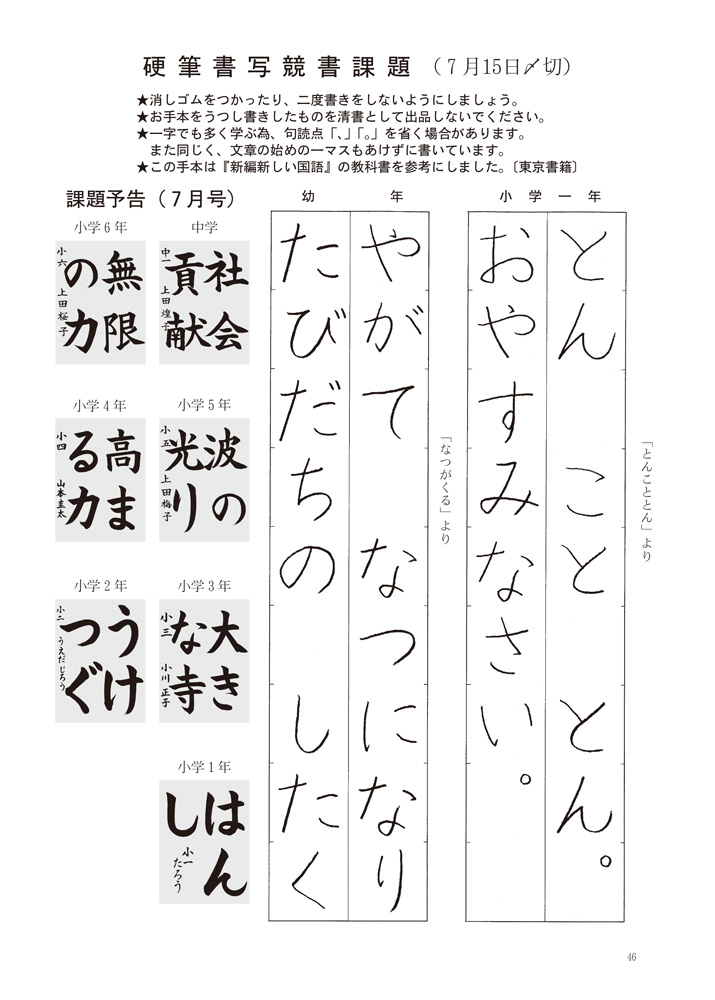 硬筆書写競書課題 （７月15日〆切）
★消しゴムをつかったり、二度書きをしないようにしましょう。
★お手本をうつし書きしたものを清書として出品しないでください。
★一字でも多く学ぶ為、句読点「、」「。」を省く場合があります。
また同じく、文章の始めの一マスもあけずに書いています。
★この手本は『新編新しい国語』の教科書を参考にしました。〔東京書籍〕
小学一年
とん　こと　とん。
おやすみなさい。
「とんことん」より
幼年
やがて　なつになり
たびだちの　したく
「なつがくる」より
課題予告（７月号）
中学
社会
貢献
中一　上田煌子
小学６年
無限
の力
小六　上田桜子
小学５年
波の
光り
小五　上田梅子
小学４年
高ま
る力
小四　山本圭太
小学３年
大き
な寺
小三　小川正子
小学２年
うけ
つぐ
小二　うえだじろう
小学１年
はん
し
小一　たろう
46